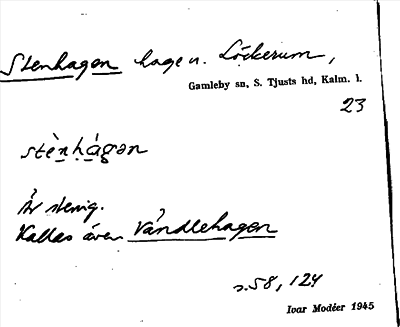 Stenhagen hage u. Löckerum,
Gamleby sn, S. Tjusts hd, Kalm. l.
23
stèn̩hágən
Är stenig.
Kallas även Våndlehagen
s. 58, 124
Ivar Modéer 1945